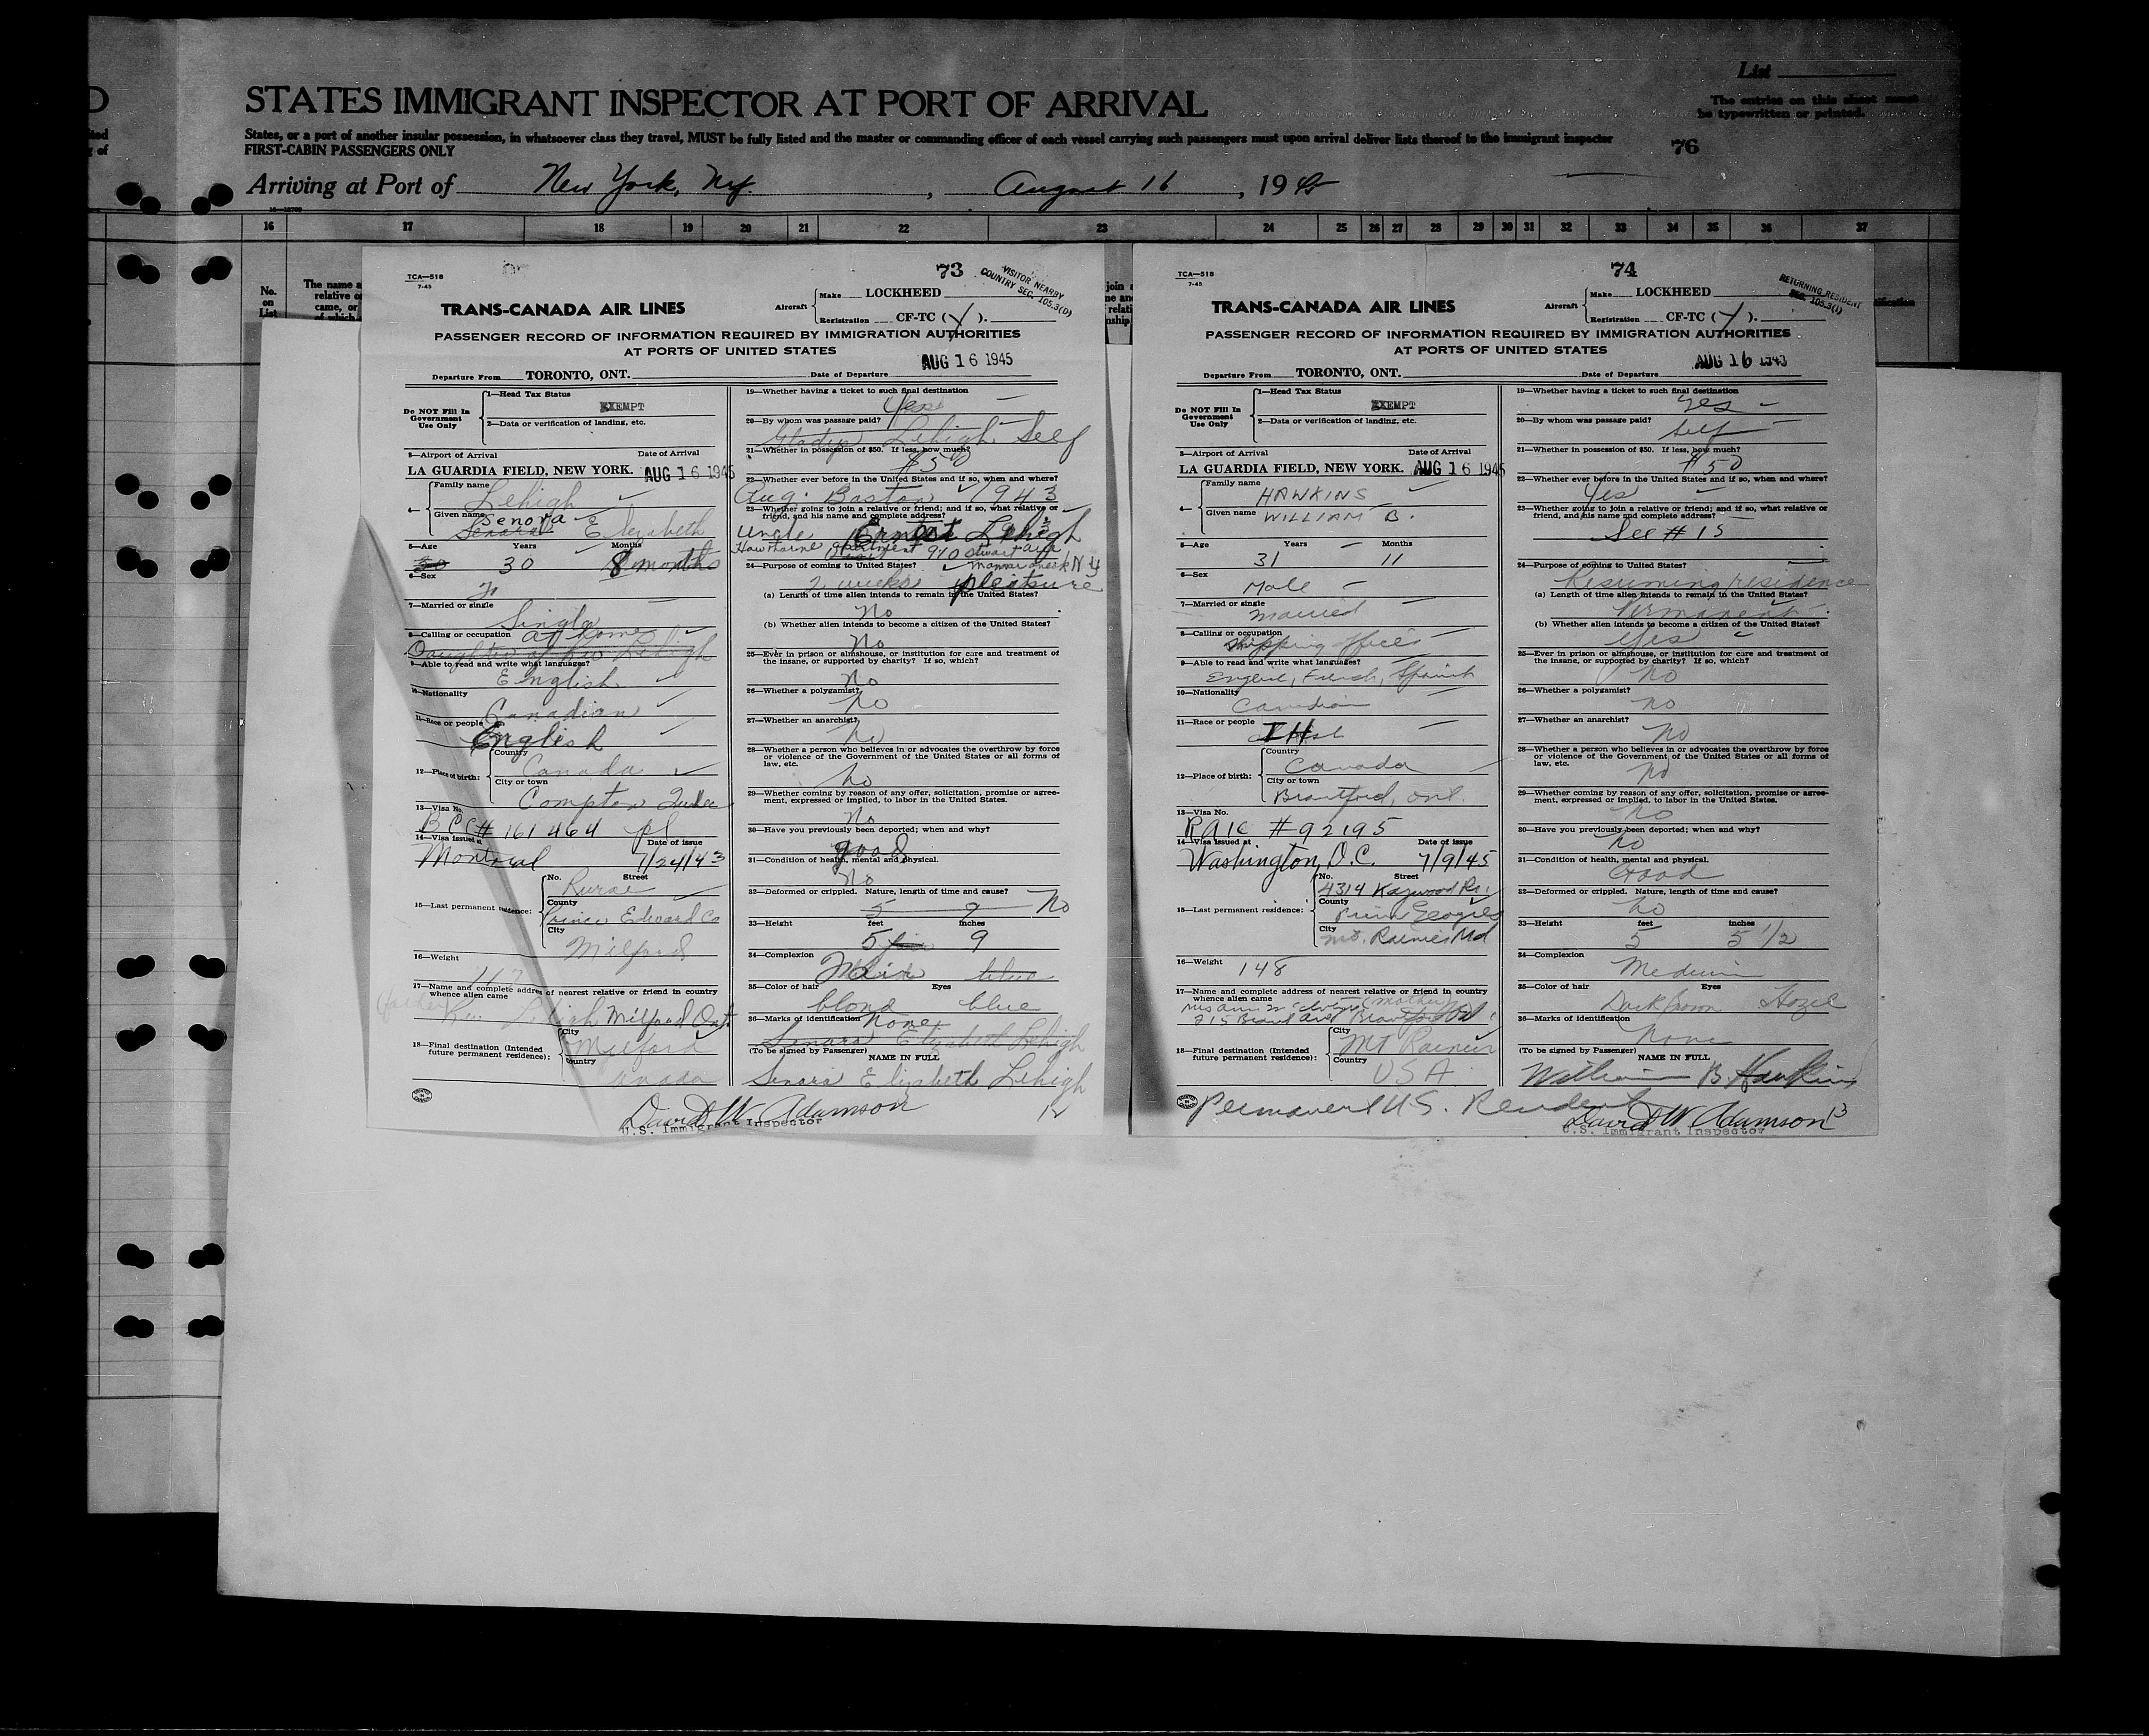 List
STATES IMMIGRANT INSPECTOR AT PORT OF ARRIVAL
The entries on this sheet must
be typewritten or printed.
States, or a port of another insular possession, in whatsoever class they travel, MUST be fully listed and the master or commanding officer of each vessel carrying such passengers must upon arrival deliver lists thereof to the immigrant inspector
FIRST-CABIN PASSENGERS ONLY
76
Arriving at Port of New York, N.Y. , August 16 , 1945
16 17 18 19 20 21 22 23 24 25 26 27 28 29 30 31 32 33 34 35 36 37
No.
on
List
The name a
relative o
came, or
TCA—518
7-45
73
VISITOR NEARBY
COUNTRY SEC. 105.3(D)
TRANS-CANADA AIR LINES
Aircraft
Make LOCKHEED
Registration CF-TC (Y).
PASSENGER RECORD OF INFORMATION REQUIRED BY IMMIGRATION AUTHORITIES
AT PORTS OF UNITED STATES
AUG 16 1945
Departure From TORONTO, ONT. Date of Departure
Do NOT Fill In
Government
Use Only
1—Head Tax Status
EXEMPT
2—Data or verification of landing, etc.
3—Airport of Arrival Date of Arrival
LA GUARDIA FIELD, NEW YORK. AUG 16 1945
4— Family name Lehigh
Given name Senora Elizabeth
5—Age Years Months
30 30 8 months
6—Sex
F
7—Married or single
Single
8—Calling or occupation at home
Daughter of Rev Lehigh
9—Able to read and write what languages?
English
10—Nationality
Canadian
11—Race or people
English
12—Place of birth:
Country
Canada
City or town
Compton Quebec
13—Visa No.
BCC# 161464
14—Visa issued at Date of issue
Montreal 7/24/43
15—Last permanent residence:
No. Street
Rural
County
Prince Edward Co
City
Milford
16—Weight
117
17—Name and complete address of nearest relative or friend in country
whence alien came
(father) Rev. Lehigh Milford Ont.
18—Final destination (Intended
future permanent residence):
City
Milford
Country
Canada
19—Whether having a ticket to such final destination
Yes
20—By whom was passage paid?
Gladys Lehigh Self
21—Whether in possession of $50. If less, how much?
$50
22—Whether ever before in the United States and if so, when and where?
Aug. Boston 1943
23—Whether going to join a relative or friend; and if so, what relative or
friend, and his name and complete address?
Uncle Ernest Lehigh
Hawthorne apartment 910 Stuart ave
24—Purpose of coming to United States? Mamaroneck N Y
2 weeks pleasure
(a) Length of time alien intends to remain in the United States?
No
(b) Whether alien intends to become a citizen of the United States?
No
25—Ever in prison or almshouse, or institution for care and treatment of
the insane, or supported by charity? If so, which?
No
26—Whether a polygamist?
No
27—Whether an anarchist?
No
28—Whether a person who believes in or advocates the overthrow by force
or violence of the Government of the United States or all forms of
law, etc.
No
29—Whether coming by reason of any offer, solicitation, promise or agree-
ment, expressed or implied, to labor in the United States.
No
30—Have you previously been deported; when and why?
good
31—Condition of health, mental and physical.
No
32—Deformed or crippled. Nature, length of time and cause?
5 9 No
33—Height feet inches
5 9
34—Complexion
blue
35—Color of hair Eyes
blond blue
36—Marks of identification None
Senora Elizabeth Lehigh
(To be signed by Passenger) NAME IN FULL
Senora Elizabeth Lehigh
David W. Adamson
U.S. Immigrant Inspector
12
TCA—518
7-45
74
RETURNING RESIDENT
SEC. 105.3(1)
TRANS-CANADA AIR LINES
Aircraft
Make LOCKHEED
Registration CF-TC (Y).
PASSENGER RECORD OF INFORMATION REQUIRED BY IMMIGRATION AUTHORITIES
AT PORTS OF UNITED STATES
AUG 16 1945
Departure From TORONTO, ONT. Date of Departure
Do NOT Fill In
Government
Use Only
1—Head Tax Status
EXEMPT
2—Data or verification of landing, etc.
3—Airport of Arrival Date of Arrival
LA GUARDIA FIELD, NEW YORK. AUG 16 1945
4— Family name HAWKINS
Given name WILLIAM B.
5—Age Years Months
31 11
6—Sex
Male
7—Married or single
Married
8—Calling or occupation
Shipping Officer
9—Able to read and write what languages?
English, French, Spanish
10—Nationality
Canadian
11—Race or people
IH
12—Place of birth:
Country
Canada
City or town
Brantford, Ont.
13—Visa No.
RAIC #92195
14—Visa issued at Date of issue
Washington, D.C. 7/9/45
15—Last permanent residence:
No. Street
4314 Kaywood Rd.
County
Prince Georges
City
Mt. Rainier Md
16—Weight 148
17—Name and complete address of nearest relative or friend in country
whence alien came (mother)
215 Brant Ave Brantford Ont
18—Final destination (Intended
future permanent residence):
City
Mt Rainier
Country
USA
19—Whether having a ticket to such final destination
Yes
20—By whom was passage paid?
Self
21—Whether in possession of $50. If less, how much?
$50
22—Whether ever before in the United States and if so, when and where?
Yes
23—Whether going to join a relative or friend; and if so, what relative or
friend, and his name and complete address?
See #15
24—Purpose of coming to United States?
Resuming residence
(a) Length of time alien intends to remain in the United States?
Permanent
(b) Whether alien intends to become a citizen of the United States?
Yes
25—Ever in prison or almshouse, or institution for care and treatment of
the insane, or supported by charity? If so, which?
No
26—Whether a polygamist?
no
27—Whether an anarchist?
No
28—Whether a person who believes in or advocates the overthrow by force
or violence of the Government of the United States or all forms of
law, etc.
No
29—Whether coming by reason of any offer, solicitation, promise or agree-
ment, expressed or implied, to labor in the United States.
No
30—Have you previously been deported; when and why?
No
31—Condition of health, mental and physical.
Good
32—Deformed or crippled. Nature, length of time and cause?
No
33—Height feet inches
5 5 1/2
34—Complexion
Medium
35—Color of hair Eyes
Dark Brown Hazel
36—Marks of identification
None
(To be signed by Passenger) NAME IN FULL
William B. Hawkins
Permanent U.S. Resident
David W Adamson 13
U.S. Immigrant Inspector